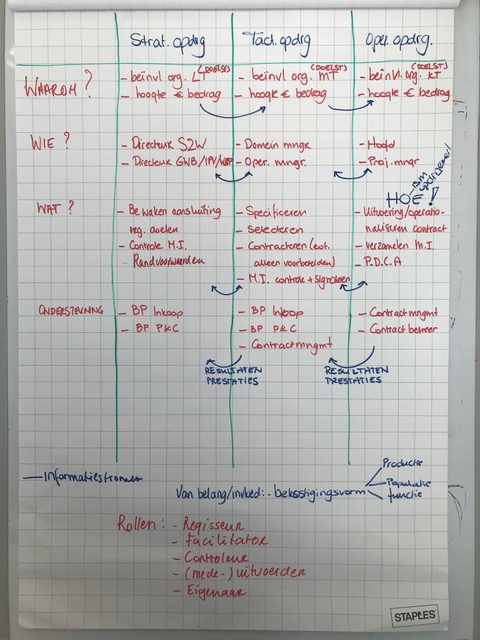 Strat. opdrg
Tact. opdrg
Oper. opdrg.
WAAROM?
- beïnvl. org. LT (DOELST)
- hoogte € bedrag
- beïnvl org. MT (DOELST)
- hoogte € bedrag
- beïnvl. org. KT (DOELST)
- hoogte € bedrag
WIE?
- Directeur S2W
- Directeur GWB/IPV/
- Domein mngr
- Oper. mngr.
- Hoofd
- Proj. mngr
HOE!
ism
opdrnemer!
WAT?
- Bewaken aansluiting
reg. doelen
- Controle M.I.
- Randvoorwaarden
- Specificeren
- Selecteren
- Contracteren (evt.
alleen voorbereiden)
- M.I. controle + signaleren
- Uitvoering/operatio-
naliseren contract
- verzamelen M.I.
- P.D.C.A
ONDERSTEUNING
- BP Inkoop
- BP P&C
- BP Inkoop
- BP P&C
- Contractmngmt
- Contractmngmt
- Contract beheer
RESULTATEN
PRESTATIES
RESULTATEN
PRESTATIES
— Informatiestromen
Van belang/invloed: - bekostigingsvorm
Productie
Populatie
functie
Rollen: - Regisseur
- Facilitator
- Controleur
- (mede-) uitvoerder
- Eigenaar
STAPLES